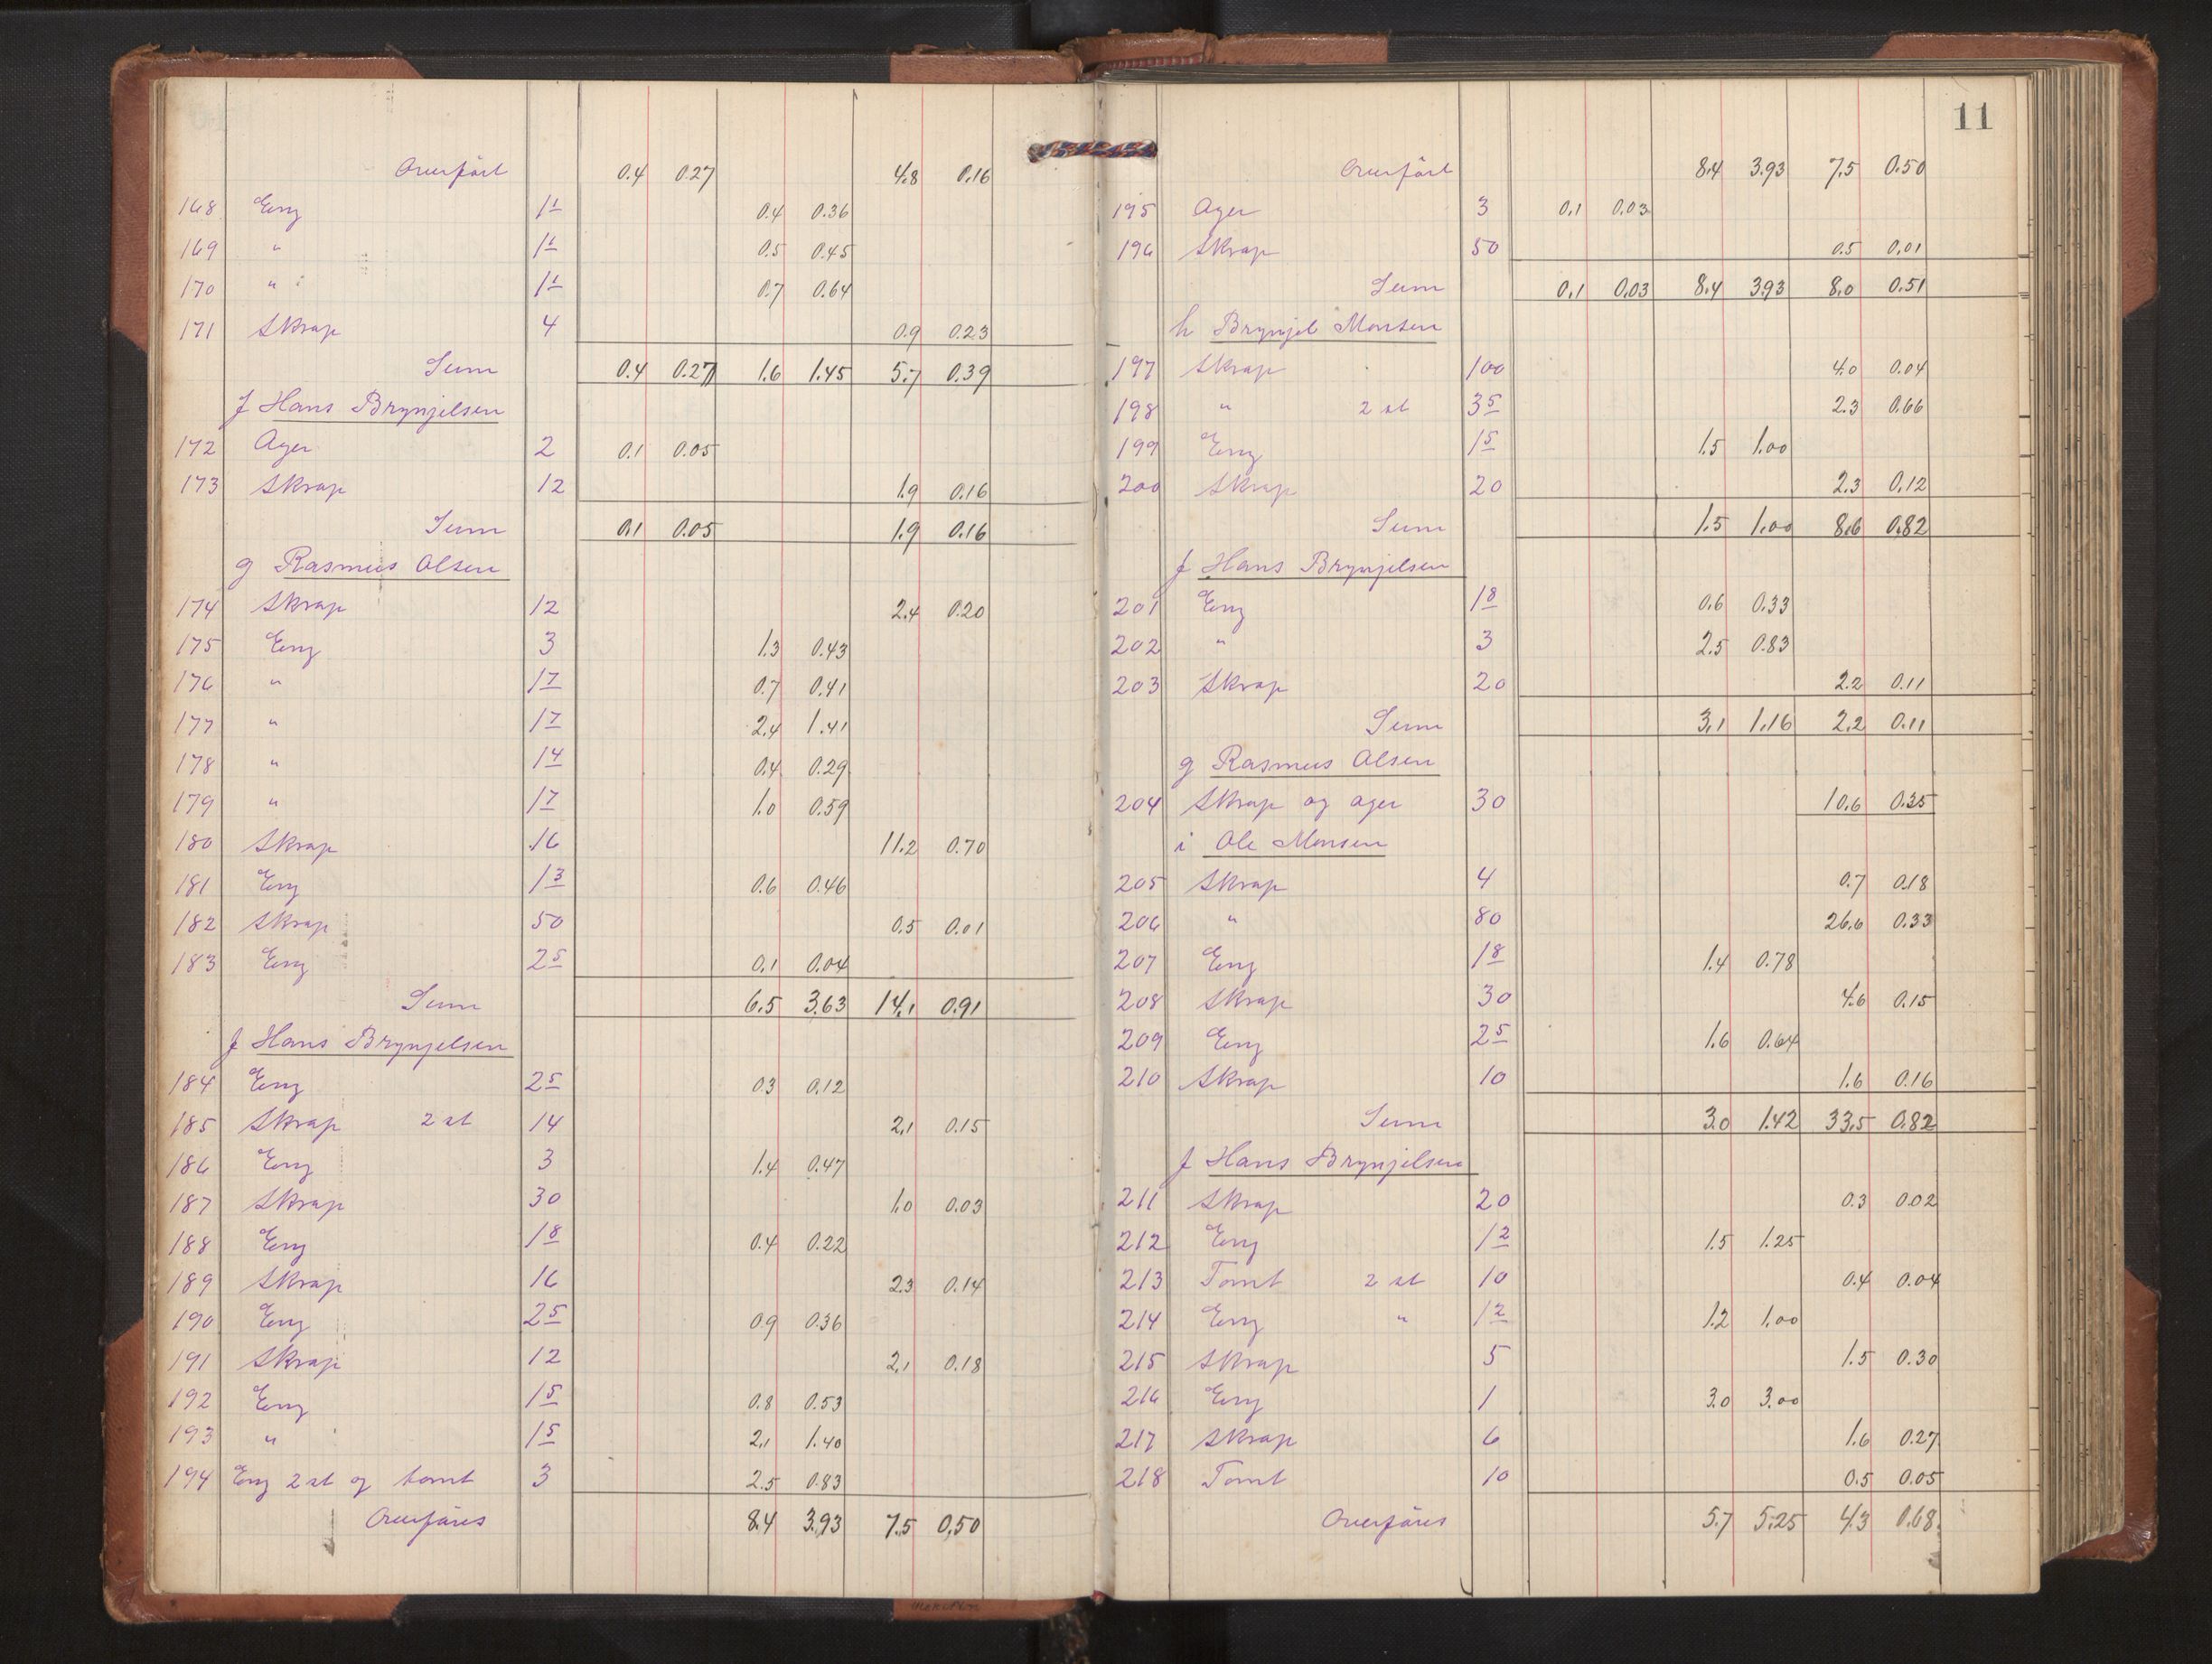 Overført 0.4 0.27 4.8 0.16
168 Eng 1 1 0.4 0.36
169 " 1 1 0.5 0.45
170 " 1 1 0.7 0.64
171 Skrap 4 0.9 0.23
Sum 0.4 0.27 1.6 1.45 5.7 0.39
f Hans Brynjelsen
172 Ager 2 0.1 0.05
173 Skrap 12 1.9 0.16
Sum 0.1 0.05 1.9 0.16
g Rasmus Olsen
174 Skrap 12 2.4 0.20
175 Eng 3 1.3 0.43
176 " 1 7 0.7 0.41
177 " 1 7 2.4 1.41
178 " 1 4 0.4 0.29
179 " 1 7 1.0 0.59
180 Skrap 16 11.2 0.70
181 Eng 1 3 0.6 0.46
182 Skrap 50 0.5 0.01
183 Eng 2 5 0.1 0.04
Sum 6.5 3.63 14.1 0.91
f Hans Brynjelsen
184 Eng 2 5 0.3 0.12
185 Skrap 2 st 14 2.1 0.15
186 Eng 3 1.4 0.47
187 Skrap 30 1.0 0.03
188 Eng 1 8 0.4 0.22
189 Skrap 16 2.3 0.14
190 Eng 2 5 0.9 0.36
191 Skrap 12 2.1 0.18
192 Eng 1 5 0.8 0.53
193 " 1 5 2.1 1.40
194 Eng 2 st og tomt 3 2.5 0.83
Overføres 8.4 3.93 7.5 0.50
11
Overført 8.4 3.93 7.5 0.50
195 Ager 3 0.1 0.03
196 Skrap 50 0.5 0.01
Sum 0.1 0.03 8.4 3.93 8.0 0.51
h Brynjel Monsen
197 Skrap 100 4.0 0.04
198 " 2 st 3 5 2.3 0.66
199 Eng 1 5 1.5 1.00
200 Skrap 20 2.3 0.12
Sum 1.5 1.00 8.6 0.82
f Hans Brynjelsen
201 Eng 1 8 0.6 0.33
202 " 3 2.5 0.83
203 Skrap 20 2.2 0.11
Sum 3.1 1.16 2.2 0.11
g Rasmus Olsen
204 Skrap og ager 30 10.6 0.35
i Ole Monsen
205 Skrap 4 0.7 0.18
206 " 80 26.6 0.33
207 Eng 1 8 1.4 0.78
208 Skrap 30 4.6 0.15
209 Eng 2 5 1.6 0.64
210 Skrap 10 1.6 0.16
Sum 3.0 1.42 33.5 0.82
f Hans Brynjelsen
211 Skrap 20 0.3 0.02
212 Eng 1 2 1.5 1.25
213 Tomt 2 st 10 0.4 0.04
214 Eng " 1 2 1.2 1.00
215 Skrap 5 1.5 0.30
216 Eng 1 3.0 3.00
217 Skrap 6 1.6 0.27
218 Tomt 10 0.5 0.05
Overføres 5.7 5.25 4.3 0.68